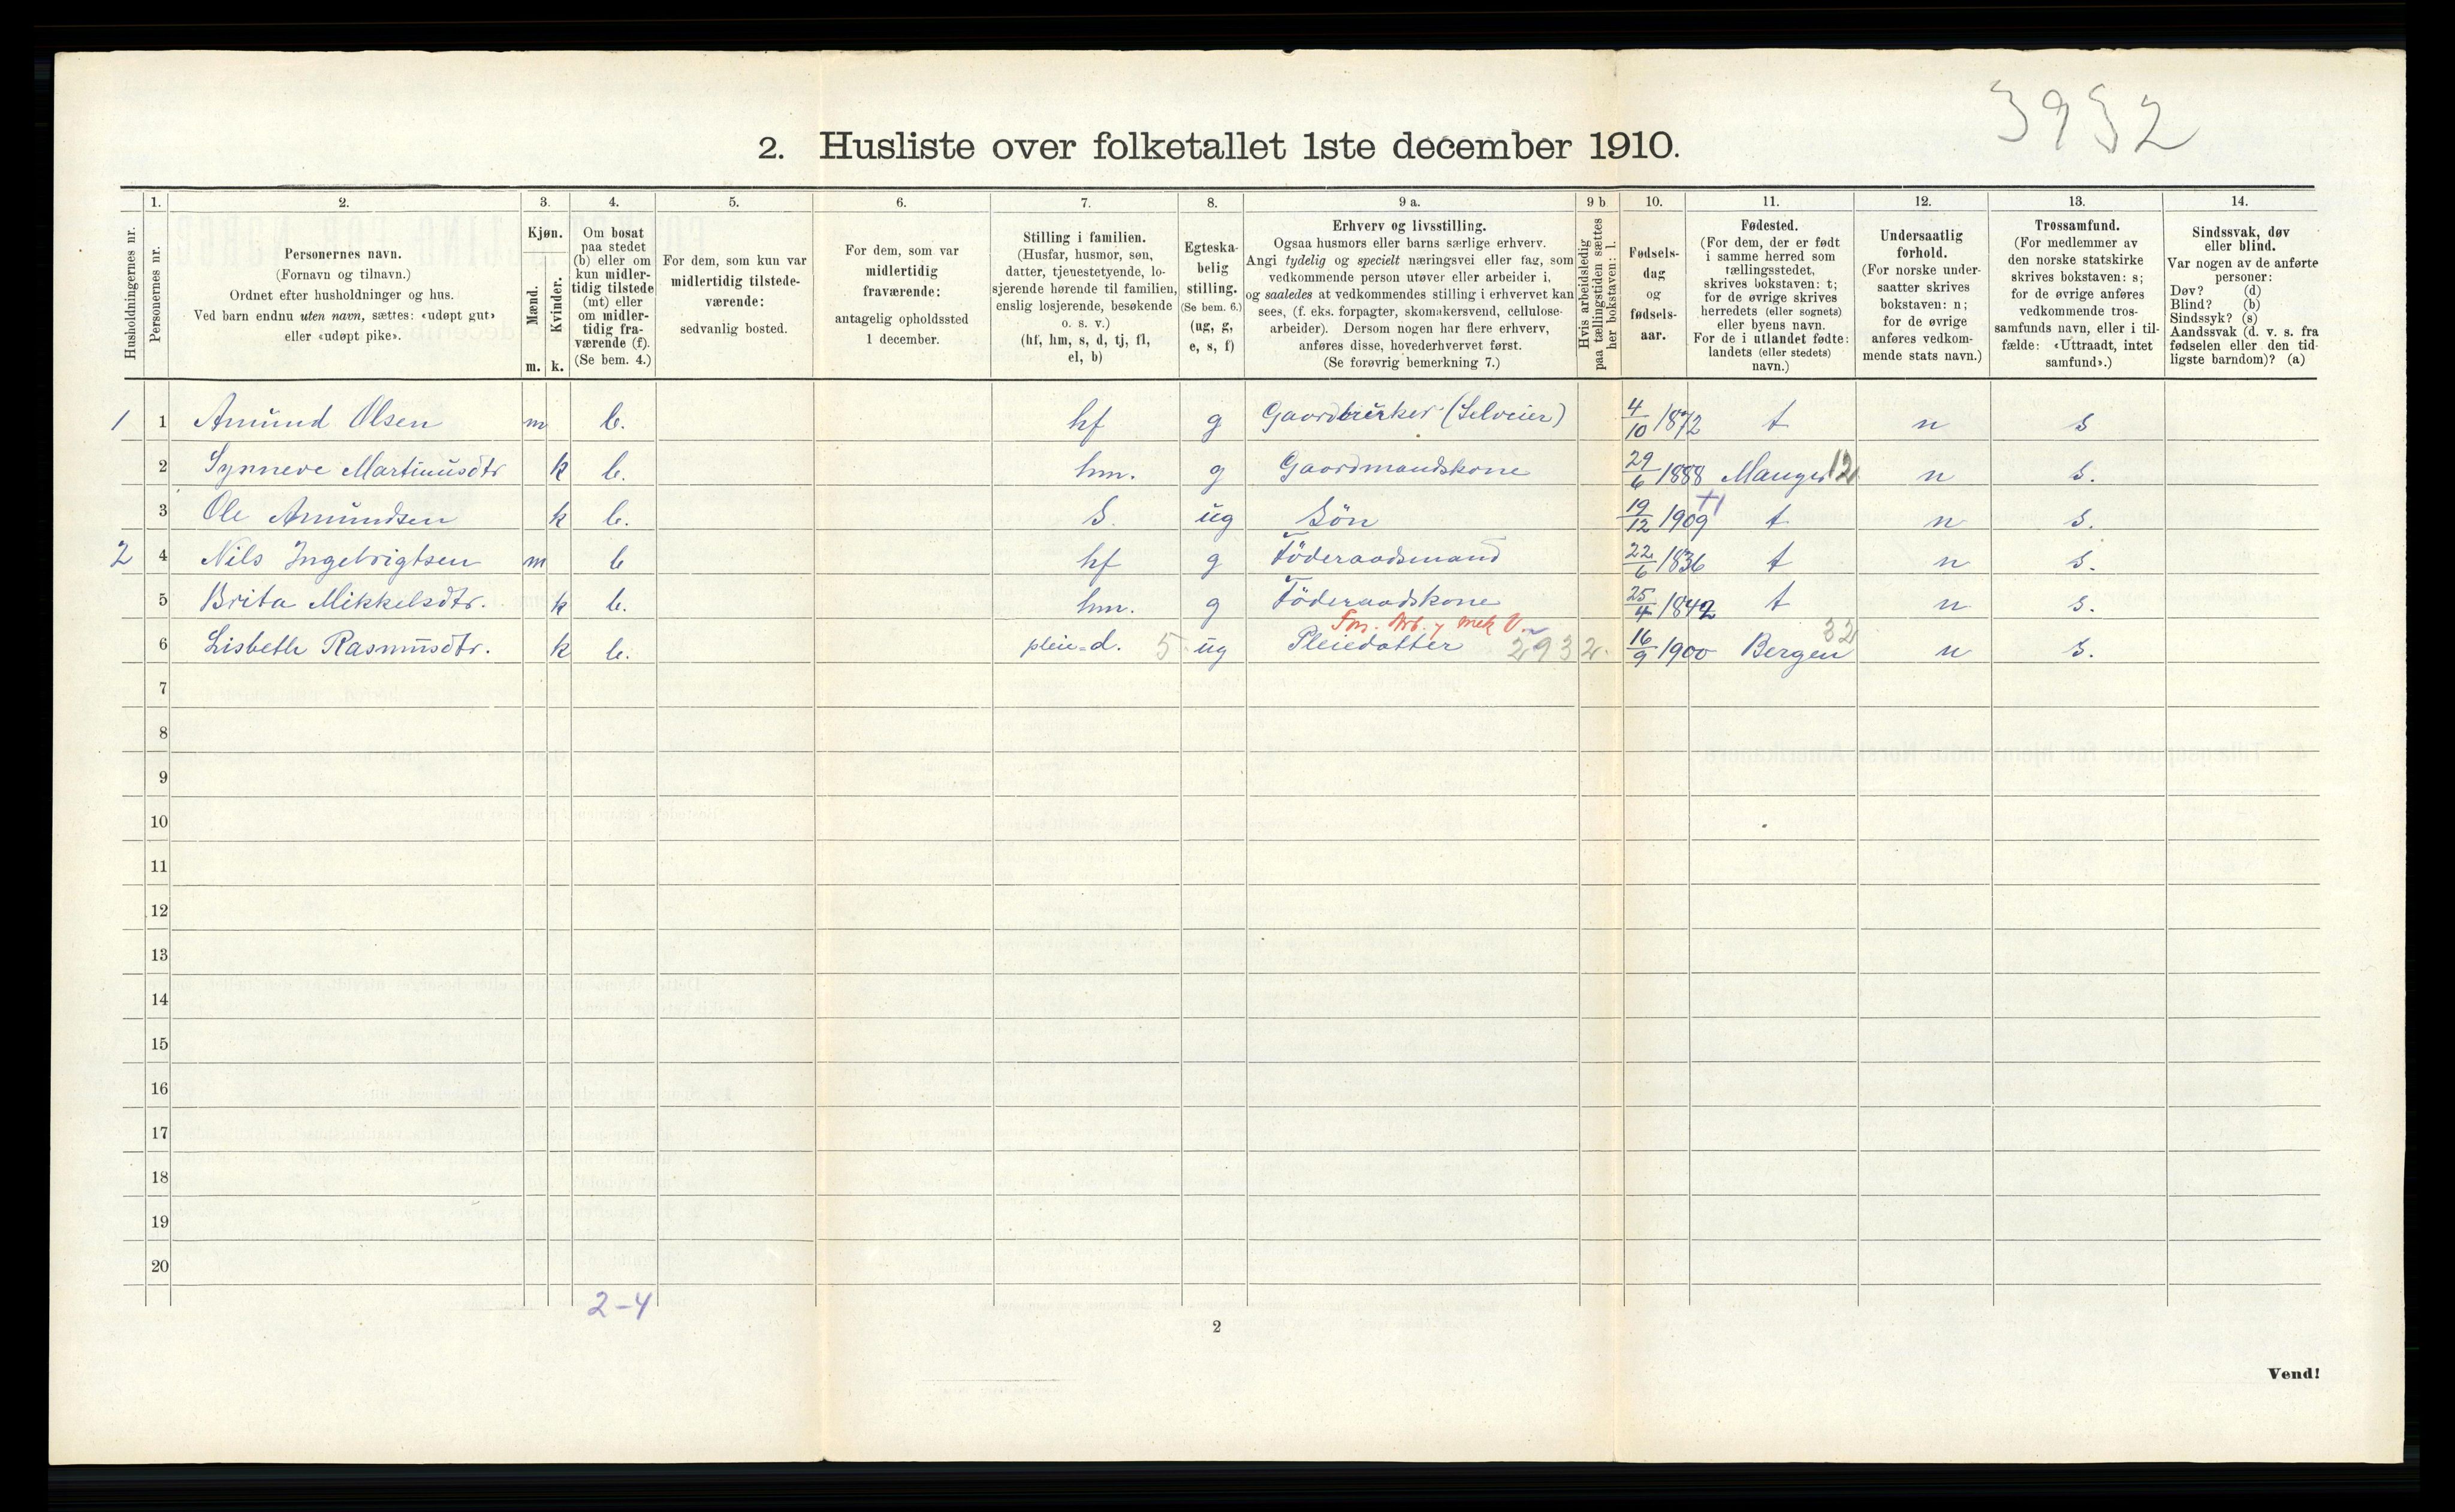 3932
2. Husliste over folketallet 1ste december 1910.
1. 2. 3. 4. 5. 6. 7. 8. 9 a. 9 b 10. 11. 12. 13. 14.
Husholdningernes nr.
Personernes nr.
Personernes navn.
(Fornavn og tilnavn.)
Ordnet efter husholdninger og hus.
Ved barn endnu uten navn, sættes: «udøpt gut»
eller «udøpt pike».
Kjøn.
Mænd.
Kvinder.
m. k.
Om bosat
paa stedet
(b) eller om
kun midler-
tidig tilstede
(mt) eller
om midler-
tidig fra-
værende (f).
(Se bem. 4.)
For dem, som kun var
midlertidig tilstede-
værende:
sedvanlig bosted.
For dem, som var
midlertidig
fraværende:
antagelig opholdssted
1 december.
Stilling i familien.
(Husfar, husmor, søn,
datter, tjenestetyende, lo-
sjerende hørende til familien,
enslig losjerende, besøkende
o. s. v.)
(hf, hm, s, d, tj, fl,
el, b)
Egteska-
belig
stilling.
(Se bem. 6.)
(ug, g,
e, s, f)
Erhverv og livsstilling.
Ogsaa husmors eller barns særlige erhverv.
Angi tydelig og specielt næringsvei eller fag, som
vedkommende person utøver eller arbeider i,
og saaledes at vedkommendes stilling i erhvervet kan
sees, (f. eks. forpagter, skomakersvend, cellulose-
arbeider). Dersom nogen har flere erhverv,
anføres disse, hovederhvervet først.
(Se forøvrig bemerkning 7.)
Hvis arbeidsledig
paa tællingstiden sættes
her bokstaven: l.
Fødsels-
dag
og
fødsels-
aar.
Fødested.
(For dem, der er født
i samme herred som
tællingsstedet,
skrives bokstaven: t;
for de øvrige skrives
herredets (eller sognets)
eller byens navn.
For de i utlandet fødte:
landets (eller stedets)
navn.)
Undersaatlig
forhold.
(For norske under-
saatter skrives
bokstaven: n;
for de øvrige
anføres vedkom-
mende stats navn.)
Trossamfund.
(For medlemmer av
den norske statskirke
skrives bokstaven: s;
for de øvrige anføres
vedkommende tros-
samfunds navn, eller i til-
fælde: «Uttraadt, intet
samfund».)
Sindssvak, døv
eller blind.
Var nogen av de anførte
personer:
Døv? (d)
Blind? (b)
Sindssyk? (s)
Aandssvak (d. v. s. fra
fødselen eller den tid-
ligste barndom)? (a)
1 1 Amund Olsen m b. hf g Gaardbruker (Selveier) 4/10 1872 t n s
2 Synneve Martinusdtr k b. hm. g Gaardmandskone 29/6 1888 Manger 12 n s.
3 Ole Amundsen k b. s. ug Søn 19/12 1909 t n s.
2 4 Nils Ingebrigtsen m b hf g Föderaadsmand 22/6 1836 t n s.
5 Brita Mikkelsdtr. k b. hm. g Föderaadskone 25/4 1842 t n s.
6 Lisbeth Rasmusdtr. k b. pleie=d. 5 ug Pleiedatter 2932. 16/9 1900 Bergen 32 n s.
7
8
9
10
11
12
13
14
15
16
17
18
19
20
2-4
2
Vend!